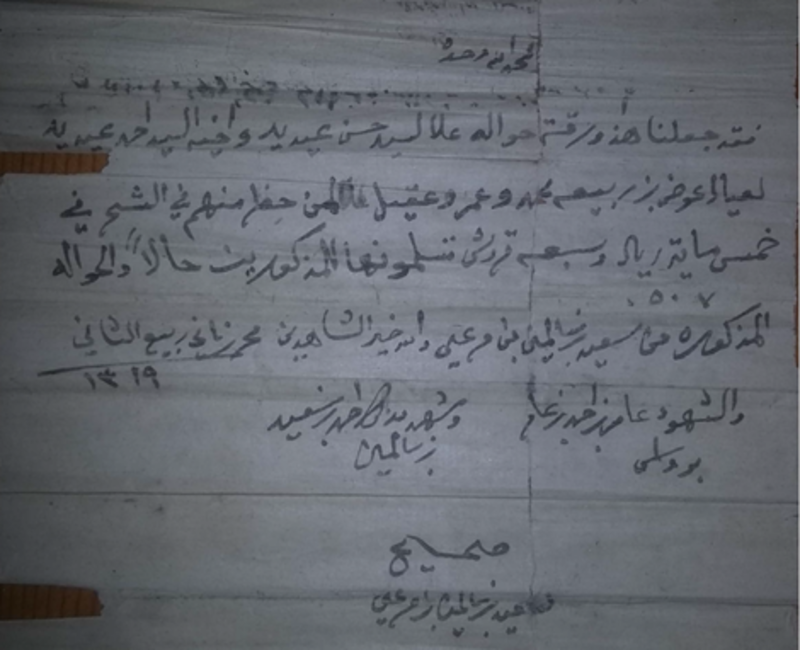 الحمد لله وحده
فقد جعلنا هذه ورقة حواله علا السيد حسن عيديد وأخيه السيد احمد عيديد
لعيال عوض بن ربيعه محمد وعمر وعقيل من حضر منهم في الشحر في
خمس ماية ريال وسبعه قروش تسلمونها المذكورين حالاً والحواله
٥٠٧
المذكوره من سعيد بن سالمين بن مرعي والله خير الشاهدين محرر ثاني ربيع الثاني
١٣١٩
والشهود عامر بن احمد بن وشهد بذلك احمد بن سعيد
بن سالمين
صحيح
سعيد بن سالمين بن مرعي